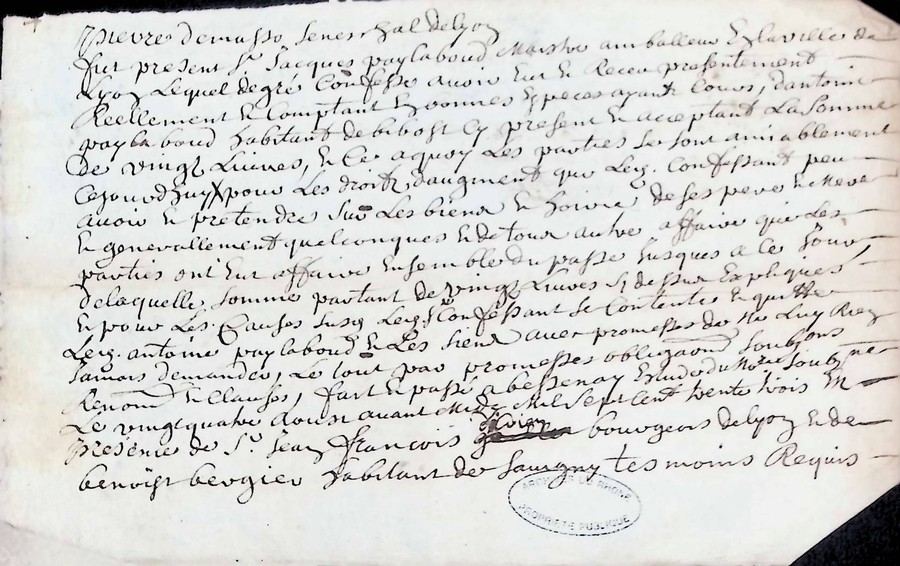 pierre demasso seneschal delyon
fut present Sr. Jacques paylaboud Maistre amballeur En laville de
Lyon Lequel degré Confesse avoir Eut et Receu presentement
Reellement et Comptant En bonnes Especes ayant Cours, dantoine
paylaboud habitant de bibost Cy present et acceptant La somme
De vingt Livres, et Ce aquoy Les parties se sont amiablement
Cejourdhuy pour Les droitz daugment que Ledt. Confessant peu
avoir et pretendre sur Les biens et hoirie de ses pere et Mere
et generallement quelconques et de tous autre affaire que Les
parties ont Eut affaire Ensemble du passé Jusques a Ce Jour,
delaquelle somme partant de vingt Livres Sy dessus Expliqués
et pour Les Causes susd. Ledt. Sr. Confessant se Contente et quitte
Ledt. antoine paylaboud et Les siens avec promesses de ne Luy Rien
Jamais demander, Le tout par promesses obligaons soubzons
Renons et Clauses, fait et passé a bessenay Etude du Nore. soubzne
Le vingt quatre aoust avant Midy Mil Sept Cent trente trois En
presence de Sr. Jean francois bourgeois delyon et de
benoist bergier habitant de Savigny tesmoins Requis
ARCHIVES DU RHONE
PROPRIETE PUBLIQUE